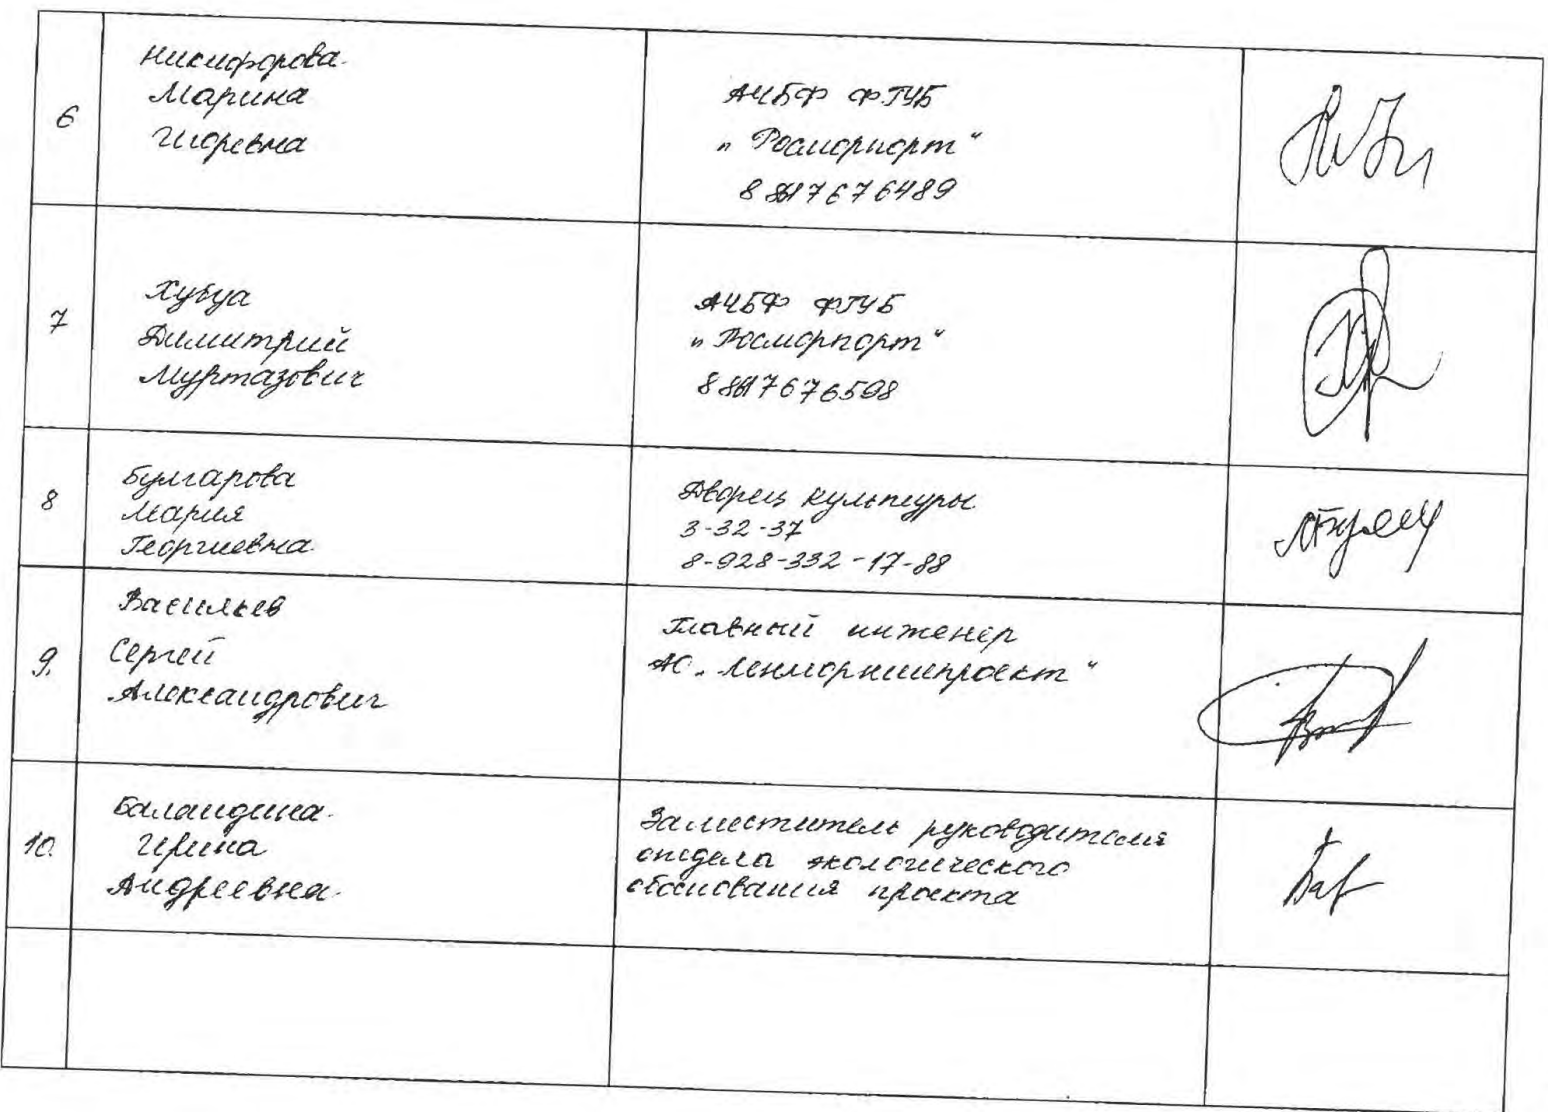 6
Никифорова
Марина
Игоревна
АЧБФ ФГУБ
„Росморпорт“
7
Хубуа
Димитрий
Муртазович
АЧБФ ФГУБ
„Росморпорт“
8
Булгарова
Мария
Георгиевна
Дворец культуры
3-32-37
8-928-332-17-88
9.
Васильев
Сергей
Александрович
Главный инженер
АО „Ленморниипроект“
10.
Баландина
Ирина
Андреевна
Заместитель руководителя
отдела экологического
обоснования проекта